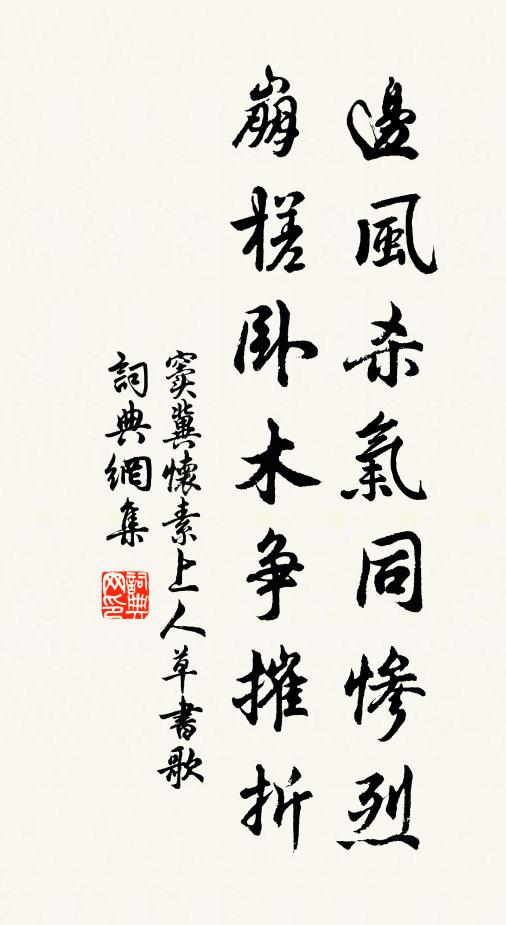 邊風杀氣同慘烈
崩槎卧木争摧折
窦冀懷素上人草書歌
詞典網集
詞典网印